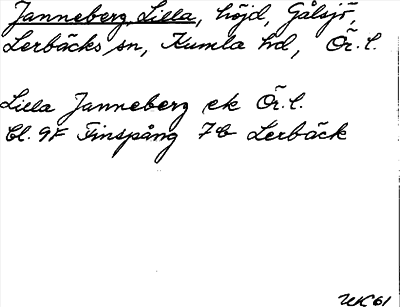 Janneberg, Lilla, höjd, Gålsjö,
Lerbäcks sn, Kumla hd, Ör. l.
Lilla Janneberg ek Ör. l.
Bl. 9F Finspång 7b Lerbäck
WC 61